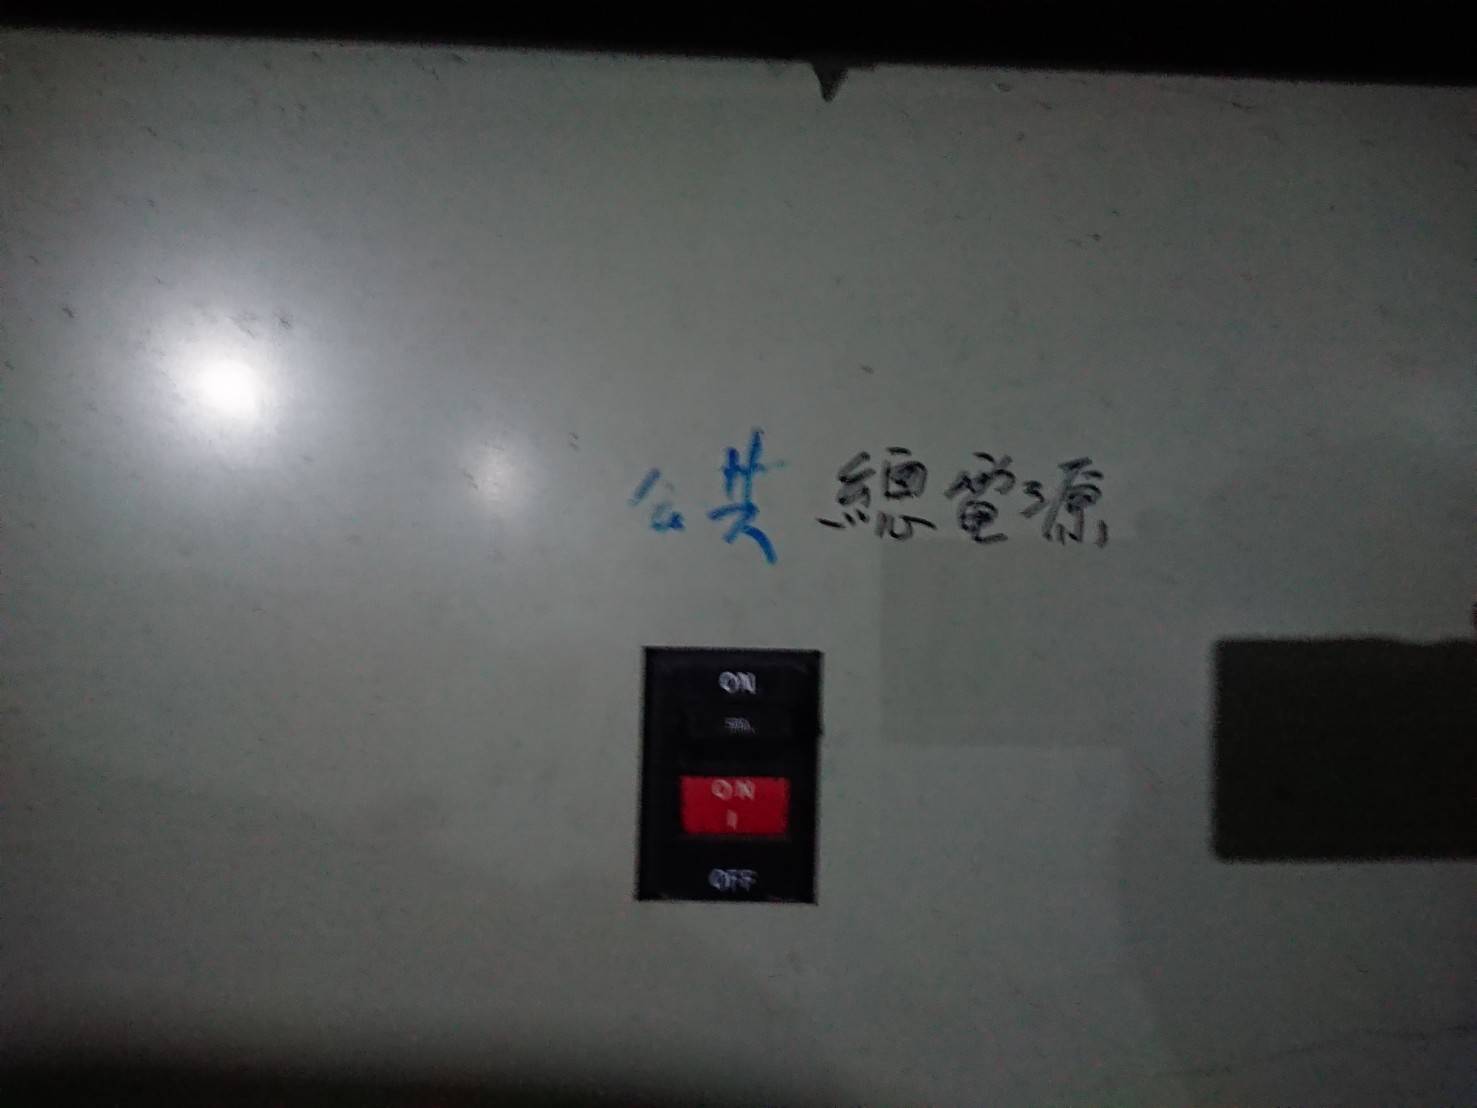 公共 總電源
ON
ON
I
OFF